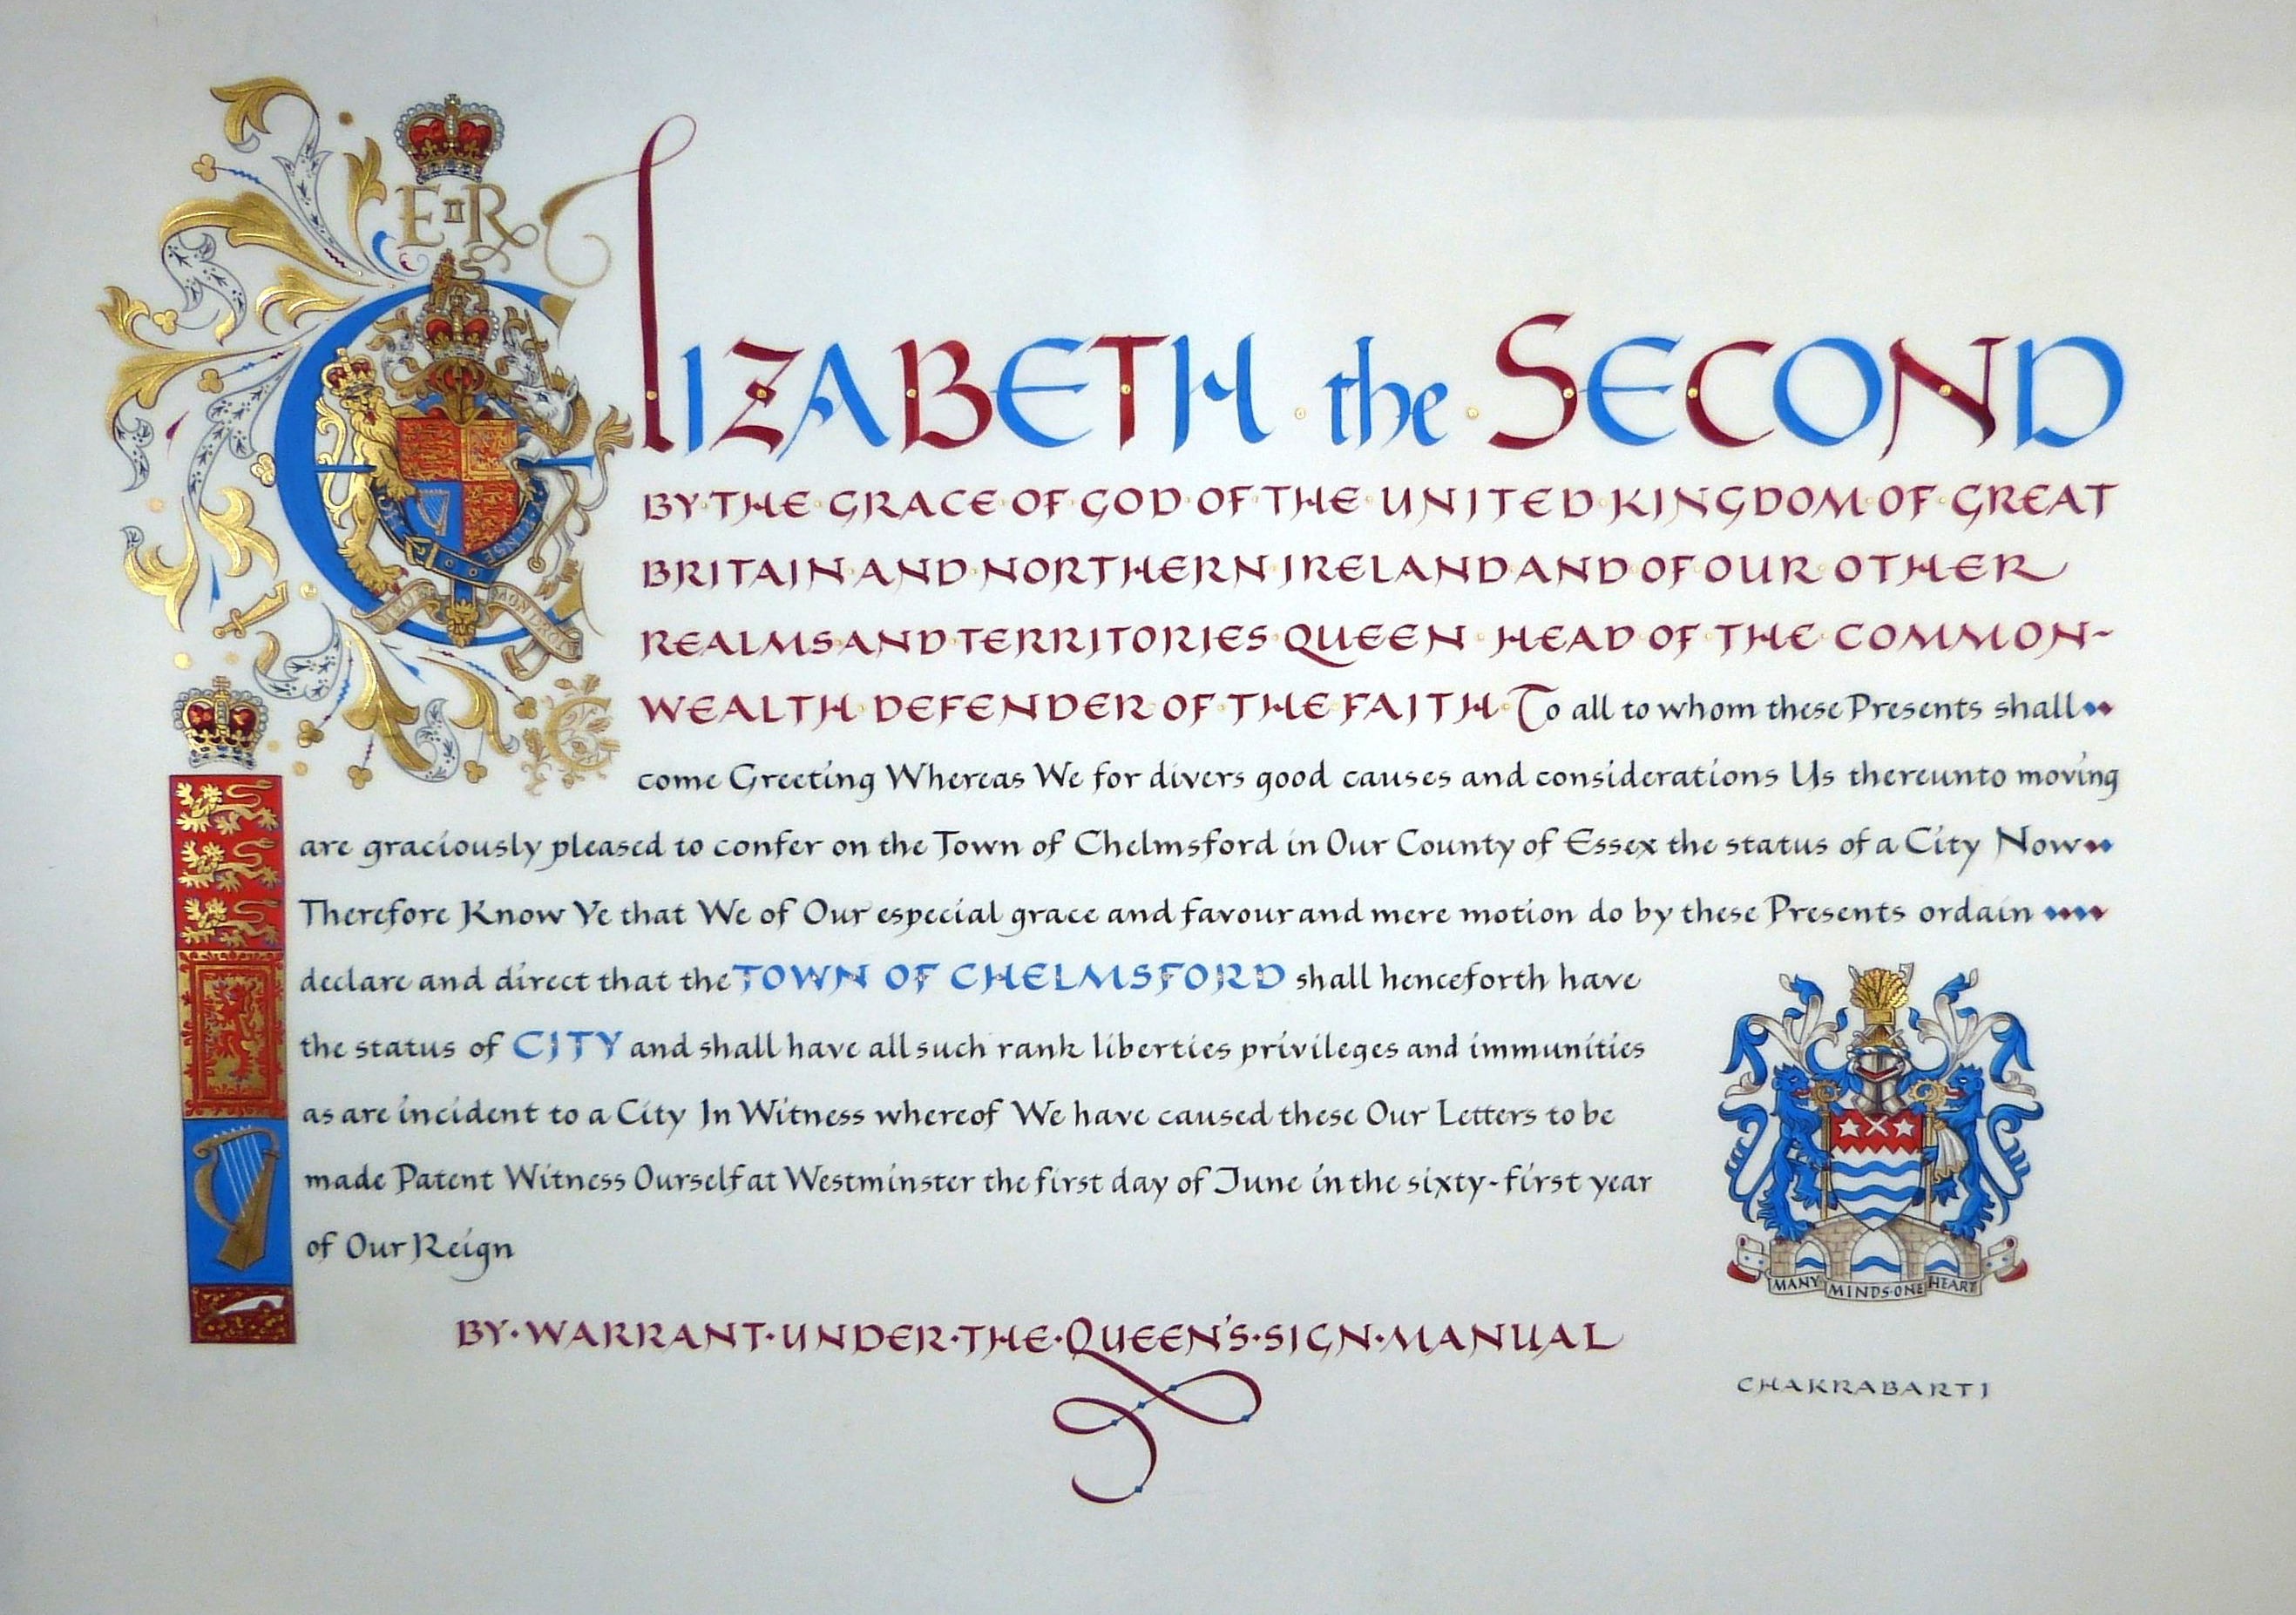 E II R
ELIZABETH the SECOND
BY·THE·GRACE·OF·GOD·OF·THE·UNITED·KINGDOM·OF·GREAT
BRITAIN·AND·NORTHERN·IRELAND·AND·OF·OUR·OTHER
REALMS·AND·TERRITORIES·QUEEN·HEAD·OF·THE·COMMON-
WEALTH·DEFENDER·OF·THE·FAITH·To all to whom these Presents shall
come Greeting Whereas We for divers good causes and considerations Us thereunto moving
are graciously pleased to confer on the Town of Chelmsford in Our County of Essex the status of a City Now
Therefore Know Ye that We of Our especial grace and favour and mere motion do by these Presents ordain
declare and direct that the TOWN OF CHELMSFORD shall henceforth have
the status of CITY and shall have all such rank liberties privileges and immunities
as are incident to a City In Witness whereof We have caused these Our Letters to be
made Patent Witness Ourself at Westminster the first day of June in the sixty-first year
of Our Reign
MANY MINDS·ONE HEART
BY·WARRANT·UNDER·THE·QUEEN'S·SIGN·MANUAL
CHAKRABARTI